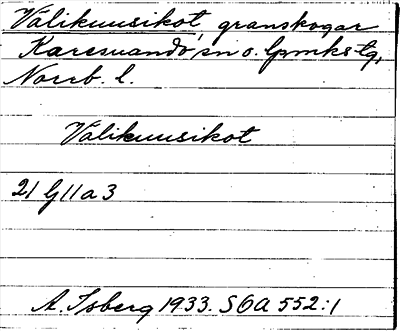 Valikuusikot, granskogar
Karesuando sn o. lpmks-tg,
Norrb. l.
Valikuusikot
21 G 11 a 3
A. Isberg 1933. SOA 552:1